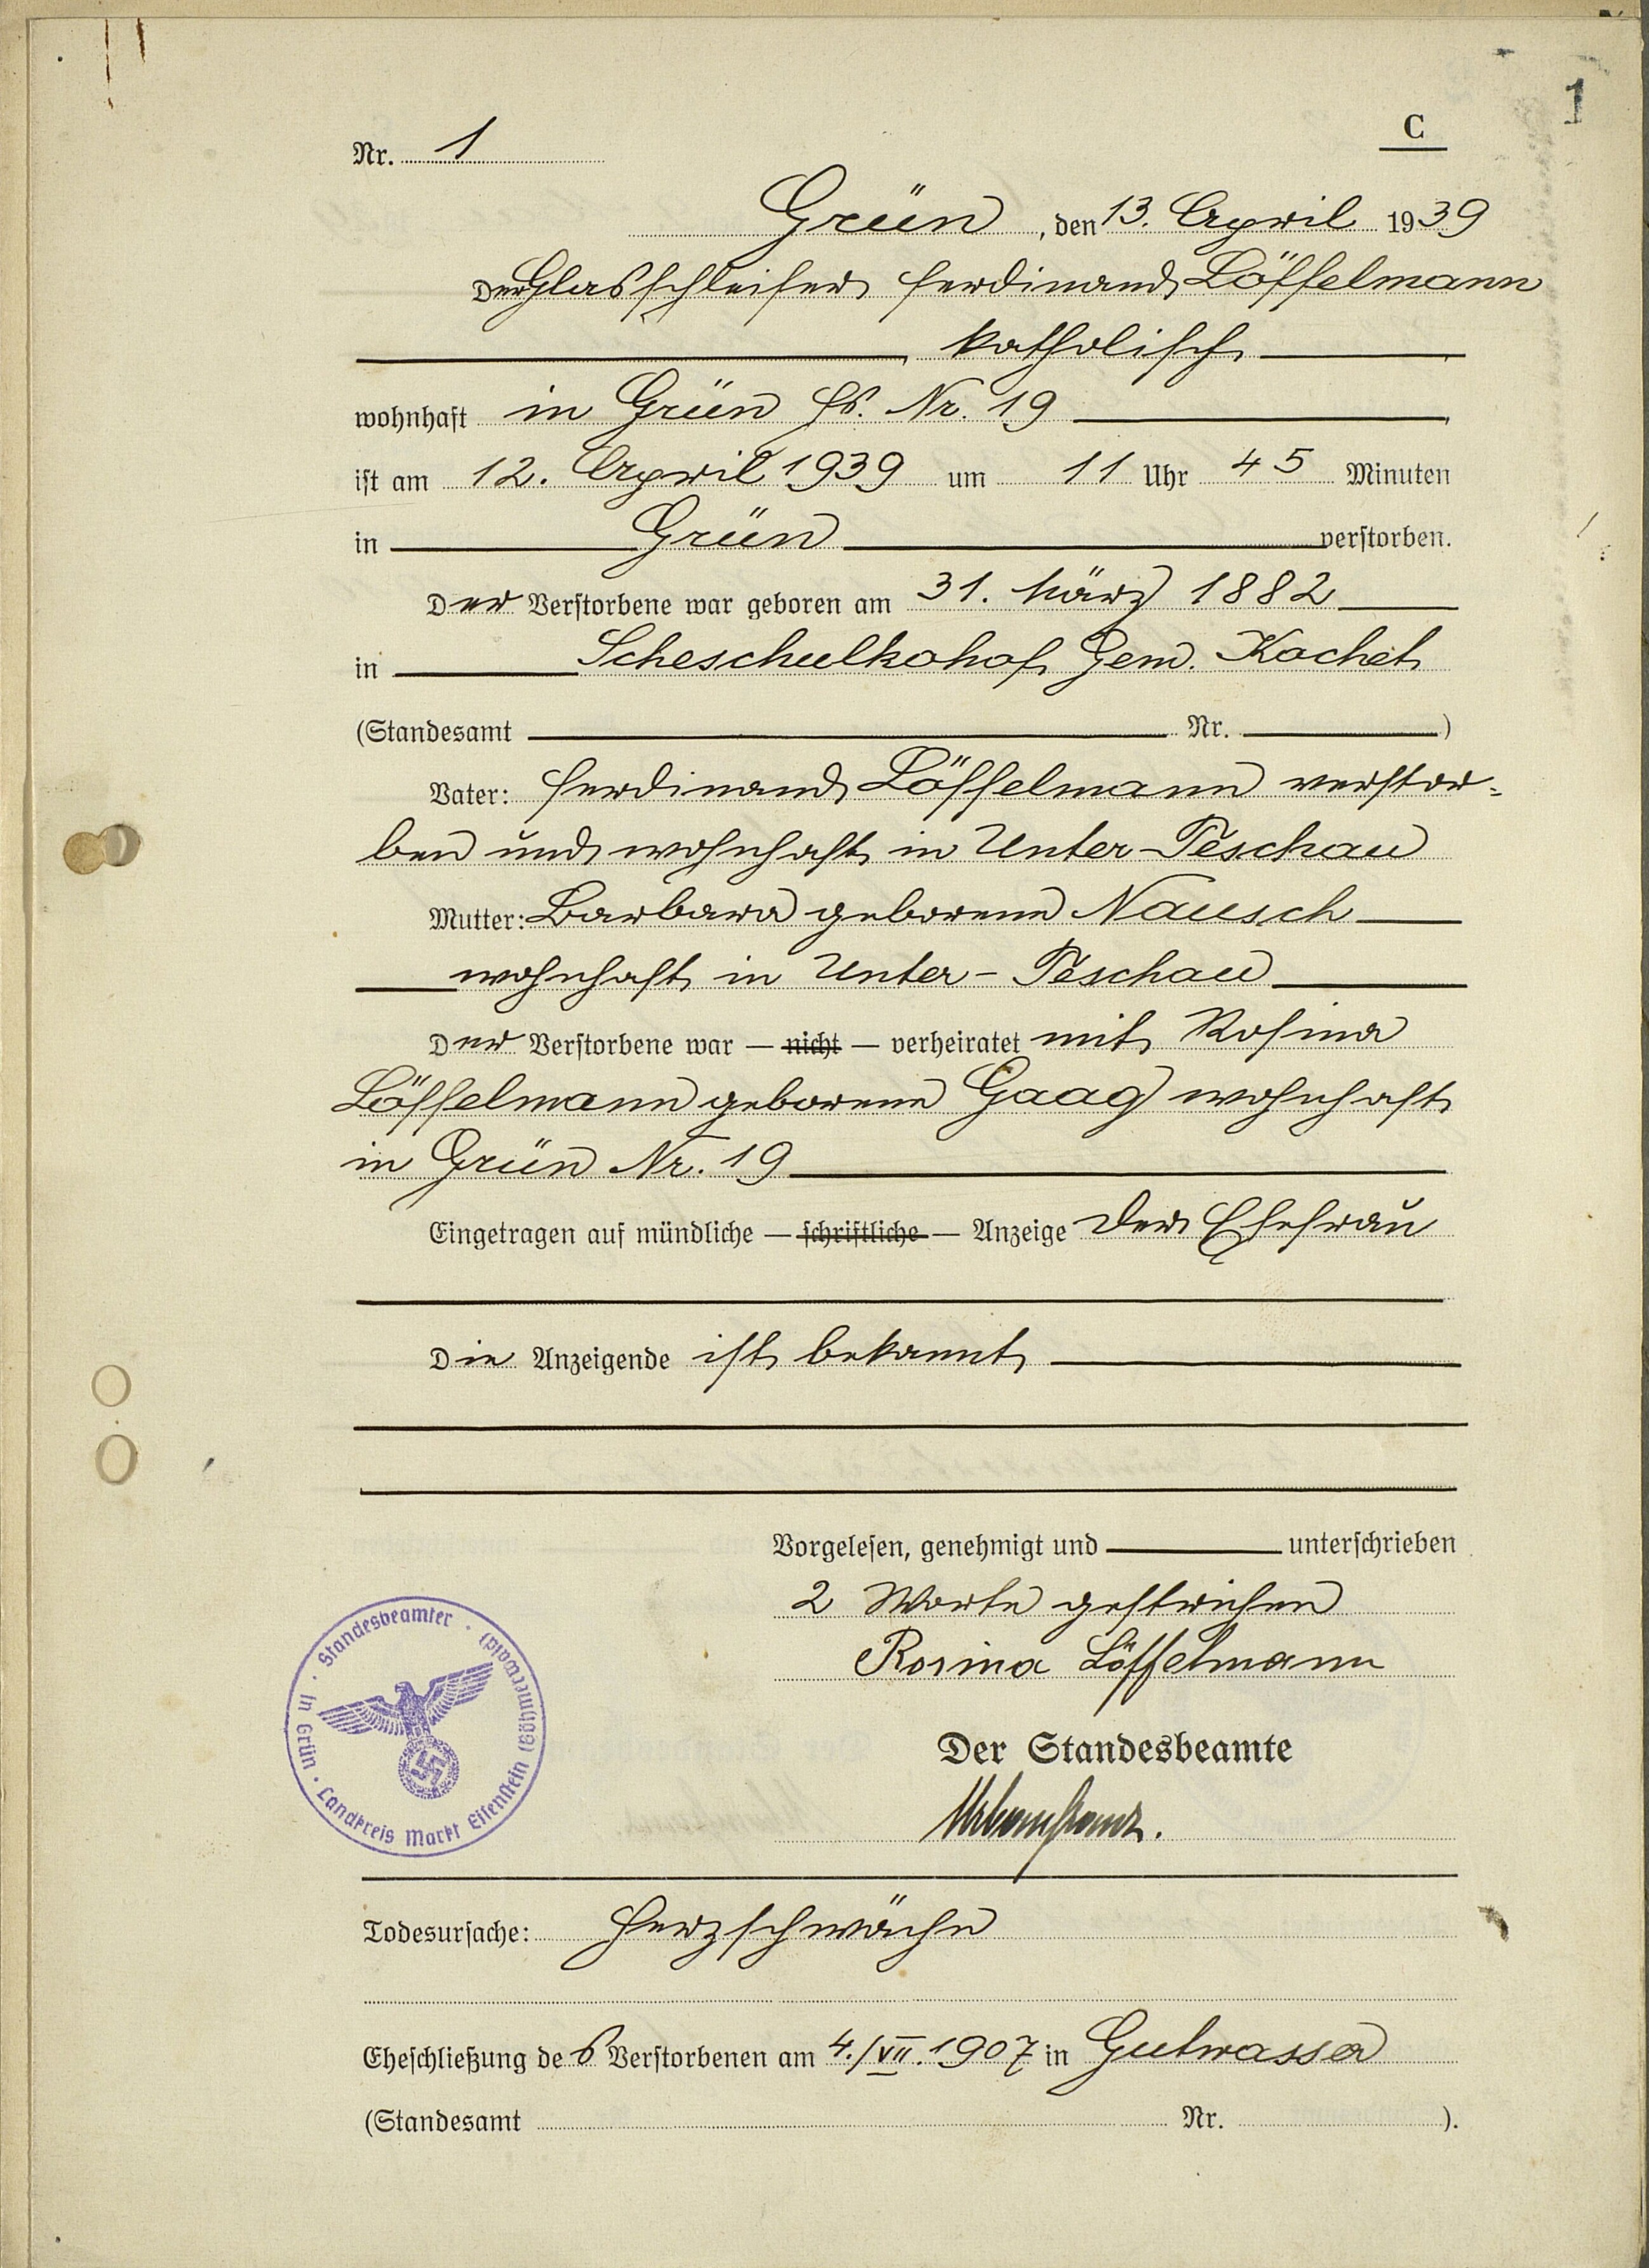 1
C
Nr. 1
Grün, den 13. April 1939
Der Glasschleifer Ferdinand Löffelmann
katholisch
wohnhaft in Grün Hs. Nr. 19
ist am 12. April 1939 um 11 Uhr 45 Minuten
in Grün verstorben.
Der Verstorbene war geboren am 31. März 1882
in Scheschulkahof Gem. Kochet
(Standesamt Nr. )
Vater: Ferdinand Löffelmann verstor-
ben und wohnhaft in Unter-Teschau
Mutter: Barbara geborene Nausch
wohnhaft in Unter-Teschau
Der Verstorbene war — nicht — verheiratet mit Rosina
Löffelmann geborene Gaag wohnhaft
in Grün Nr. 19
Eingetragen auf mündliche — schriftliche — Anzeige der Ehefrau
Die Anzeigende ist bekannt
Vorgelesen, genehmigt und unterschrieben
2 Worte gestrichen
Rosina Löffelmann
Standesbeamter · in Grün · Landkreis Markt Eisenstein (Böhmerwald)
Der Standesbeamte
Todesursache: Herzschwäche
Eheschließung des Verstorbenen am 4./VII. 1907 in Gutwasser
(Standesamt Nr. ).